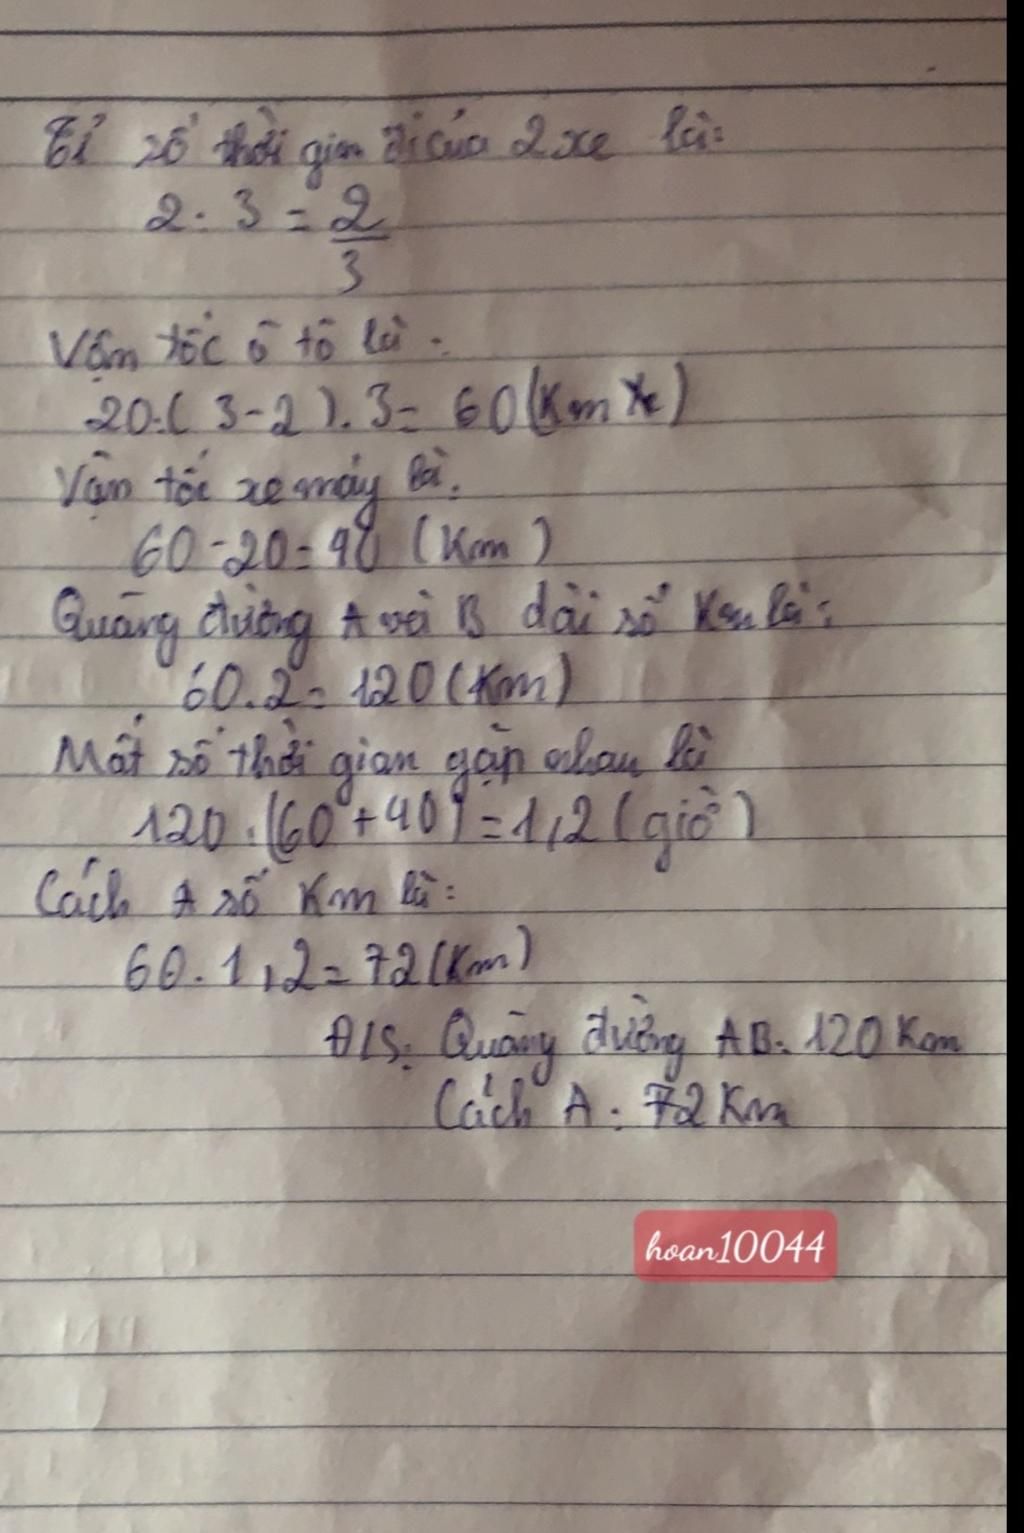 Tỉ số thời gian đi của 2 xe là:
2 : 3 = 2/3
Vận tốc ô tô là :
20:( 3-2 ). 3= 60(Km
Vận tốc xe máy là:
60-20=40 (Km)
Quãng đường A và B dài số Km là:
60.2= 120(Km)
Mất số thời gian gặp nhau là
120:(60+40)=1,2(giờ)
Cách A số Km là:
60.1,2=72(Km)
Đ/S: Quãng đường AB: 120 Km
Cách A: 72 Km
hoan10044